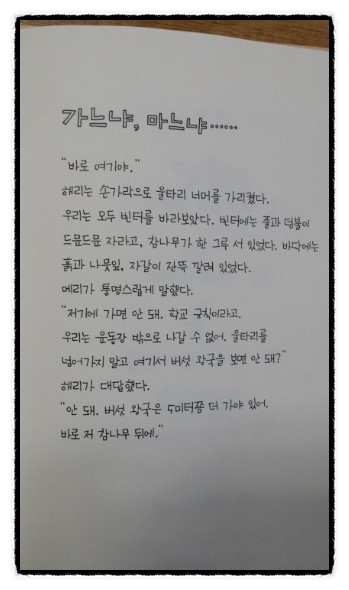 가느냐, 마느냐……
“바로 여기야.”
해리는 손가락으로 울타리 너머를 가리켰다.
우리는 모두 빈터를 바라보았다. 빈터에는 풀과 덤불이
드문드문 자라고, 참나무가 한 그루 서 있었다. 바닥에는
흙과 나뭇잎, 자갈이 잔뜩 깔려 있었다.
메리가 퉁명스럽게 말했다.
“저기에 가면 안 돼. 학교 규칙이라고.
우리는 운동장 밖으로 나갈 수 없어. 울타리를
넘어가지 말고 여기서 버섯 왕국을 보면 안 돼?”
해리가 대답했다.
“안 돼. 버섯 왕국은 5미터쯤 더 가야 있어.
바로 저 참나무 뒤에.”